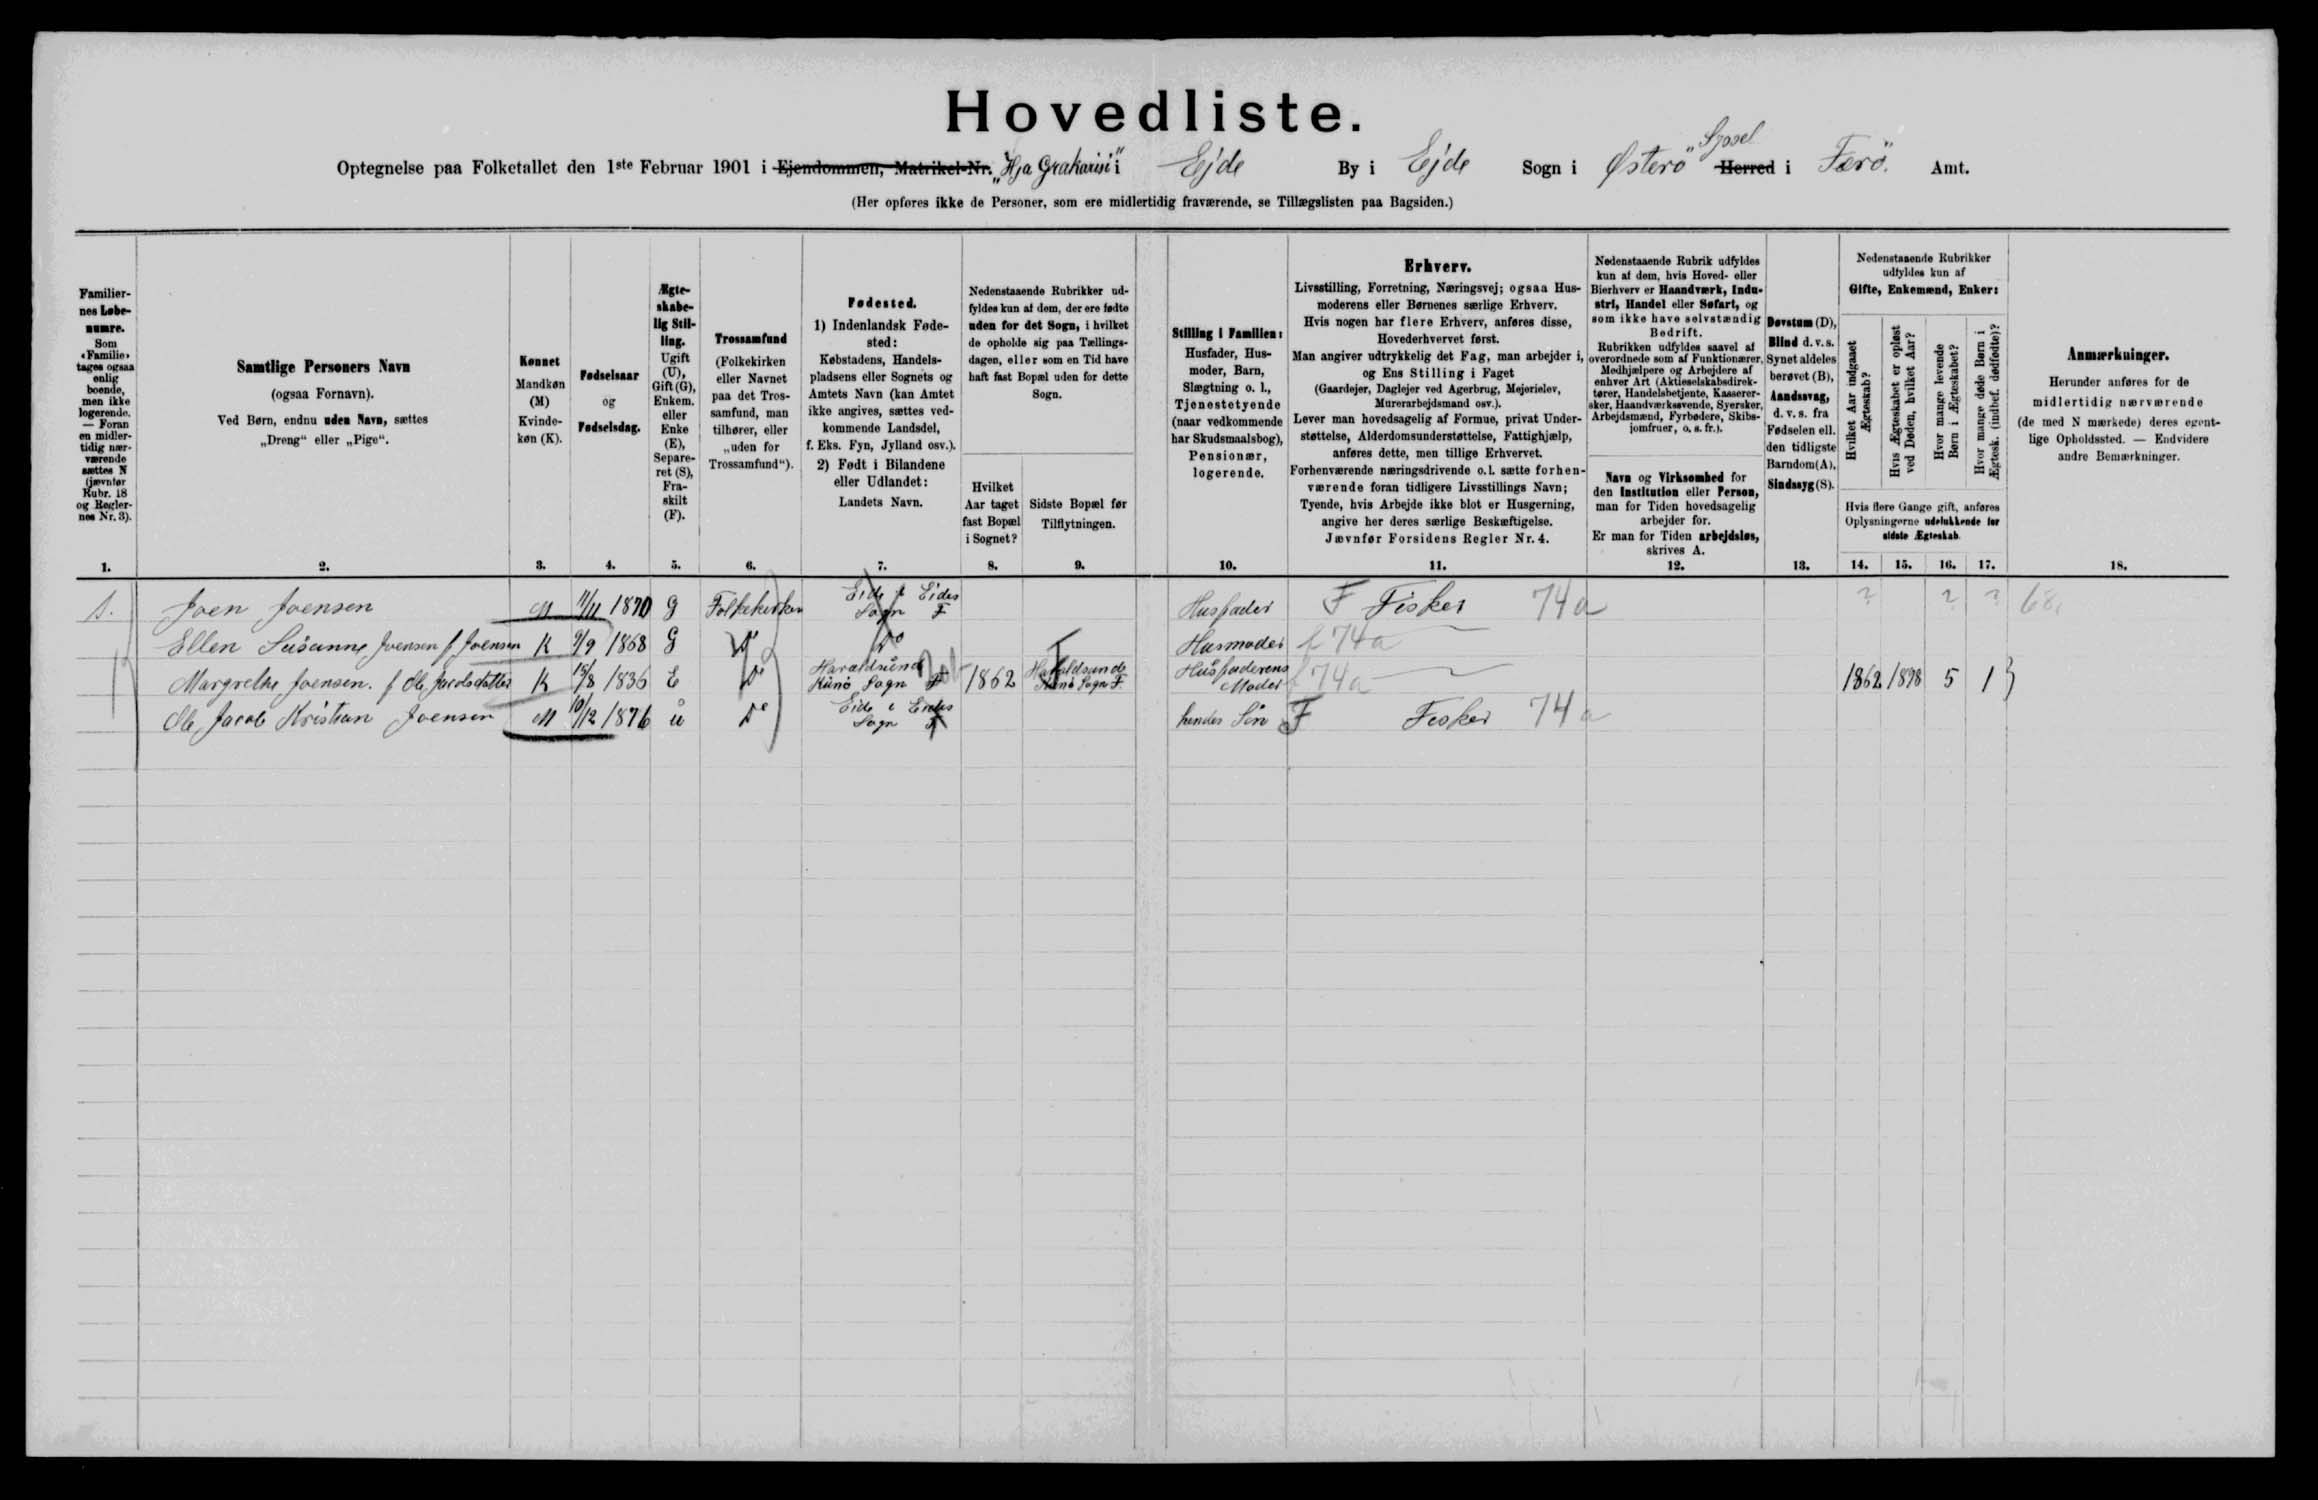 Hovedliste.
Sysel
Optegnelse paa Folketallet den 1ste Februar 1901 i Ejendommen, Matrikel-Nr. „Hja Grakarisi" i Ejde By i Ejde Sogn i Østerö Herred i Færö. Amt.
(Her opføres ikke de Personer, som ere midlertidig fraværende, se Tillægslisten paa Bagsiden.)
Familier-
nes Løbe-
numre.
Som
«Familie»
tages ogsaa
enlig
boende,
men ikke
logerende.
— Foran
en midler-
tidig nær-
værende
sættes N
(jævnfør
Rubr. 18
og Regler-
nes Nr. 3).
1.
Samtlige Personers Navn
(ogsaa Fornavn).
Ved Børn, endnu uden Navn, sættes
„Dreng" eller „Pige".
2.
Kønnet
Mandkøn
(M)
Kvinde-
køn (K).
3.
Fødselsaar
og
Fødselsdag.
4.
Ægte-
skabe-
lig Stil-
ling.
Ugift
(U),
Gift (G),
Enkem.
eller
Enke
(E),
Separe-
ret (S),
Fra-
skilt
(F).
5.
Trossamfund
(Folkekirken
eller Navnet
paa det Tros-
samfund, man
tilhører, eller
„uden for
Trossamfund").
6.
Fødested.
1) Indenlandsk Føde-
sted:
Købstadens, Handels-
pladsens eller Sognets og
Amtets Navn (kan Amtet
ikke angives, sættes ved-
kommende Landsdel,
f. Eks. Fyn, Jylland osv.).
2) Født i Bilandene
eller Udlandet:
Landets Navn.
7.
Nedenstaaende Rubrikker ud-
fyldes kun af dem, der ere fødte
uden for det Sogn, i hvilket
de opholde sig paa Tællings-
dagen, eller som en Tid have
haft fast Bopæl uden for dette
Sogn.
Hvilket
Aar taget
fast Bopæl
i Sognet?
8.
Sidste Bopæl før
Tilflytningen.
9.
Stilling i Familien:
Husfader, Hus-
moder, Barn,
Slægtning o. l.,
Tjenestetyende
(naar vedkommende
har Skudsmaalsbog),
Pensionær,
logerende.
10.
Erhverv.
Livsstilling, Forretning, Næringsvej; ogsaa Hus-
moderens eller Børnenes særlige Erhverv.
Hvis nogen har flere Erhverv, anføres disse,
Hovederhvervet først.
Man angiver udtrykkelig det Fag, man arbejder i,
og Ens Stilling i Faget
(Gaardejer, Daglejer ved Agerbrug, Mejerielev,
Murerarbejdsmand osv.).
Lever man hovedsagelig af Formue, privat Under-
støttelse, Alderdomsunderstøttelse, Fattighjælp,
anføres dette, men tillige Erhvervet.
Forhenværende næringsdrivende o.l. sætte forhen-
værende foran tidligere Livsstillings Navn;
Tyende, hvis Arbejde ikke blot er Husgerning,
angive her deres særlige Beskæftigelse.
Jævnfør Forsidens Regler Nr. 4.
11.
Nedenstaaende Rubrik udfyldes
kun af dem, hvis Hoved- eller
Bierhverv er Haandværk, Indu-
stri, Handel eller Søfart, og
som ikke have selvstændig
Bedrift.
Rubrikken udfyldes saavel af
overordnede som af Funktionærer,
Medhjælpere og Arbejdere af
enhver Art (Aktieselskabsdirek-
tører, Handelsbetjente, Kasserer-
sker, Haandværkssvende, Syersker,
Arbejdsmænd, Fyrbødere, Skibs-
jomfruer, o. s. fr.).
Navn og Virksomhed for
den Institution eller Person,
man for Tiden hovedsagelig
arbejder for.
Er man for Tiden arbejdsløs,
skrives A.
12.
Døvstum (D),
Blind d. v. s.
Synet aldeles
berøvet (B),
Aandssvag,
d. v. s. fra
Fødselen ell.
den tidligste
Barndom(A),
Sindssyg (S).
13.
Nedenstaaende Rubrikker
udfyldes kun af
Gifte, Enkemænd, Enker:
Hvilket Aar indgaaet
Ægteskab?
Hvis Ægteskabet er opløst
ved Døden, hvilket Aar?
Hvor mange levende
Børn i Ægteskabet?
Hvor mange døde Børn i
Ægtesk. (indbef. dødfødte)?
Hvis flere Gange gift, anføres
Oplysningerne udelukkende for
sidste Ægteskab.
14. 15. 16. 17.
Anmærkninger.
Herunder anføres for de
midlertidig nærværende
(de med N mærkede) deres egent-
lige Opholdssted. — Endvidere
andre Bemærkninger.
18.
1. Joen Joensen M 11/11 1870 G Folkekirken Eide i Eides Sogn F Husfader F Fisker 74a ? ? ? 68,
Ellen Susanne Joensen f Joensen K 9/9 1868 G Do Do Husmoder f 74a
Margrethe Joensen. f Ole Jacobsdatter K 15/8 1836 E Do Haraldsund Künö Sogn F 1862 Haraldsunde Künö Sogn F. Husfaderens Moder f 74a 1862 1898 5 1
Ole Jacob Kristian Joensen M 10/12 1876 U Do Eide i Eides Sogn F hendes Sön F Fisker 74a